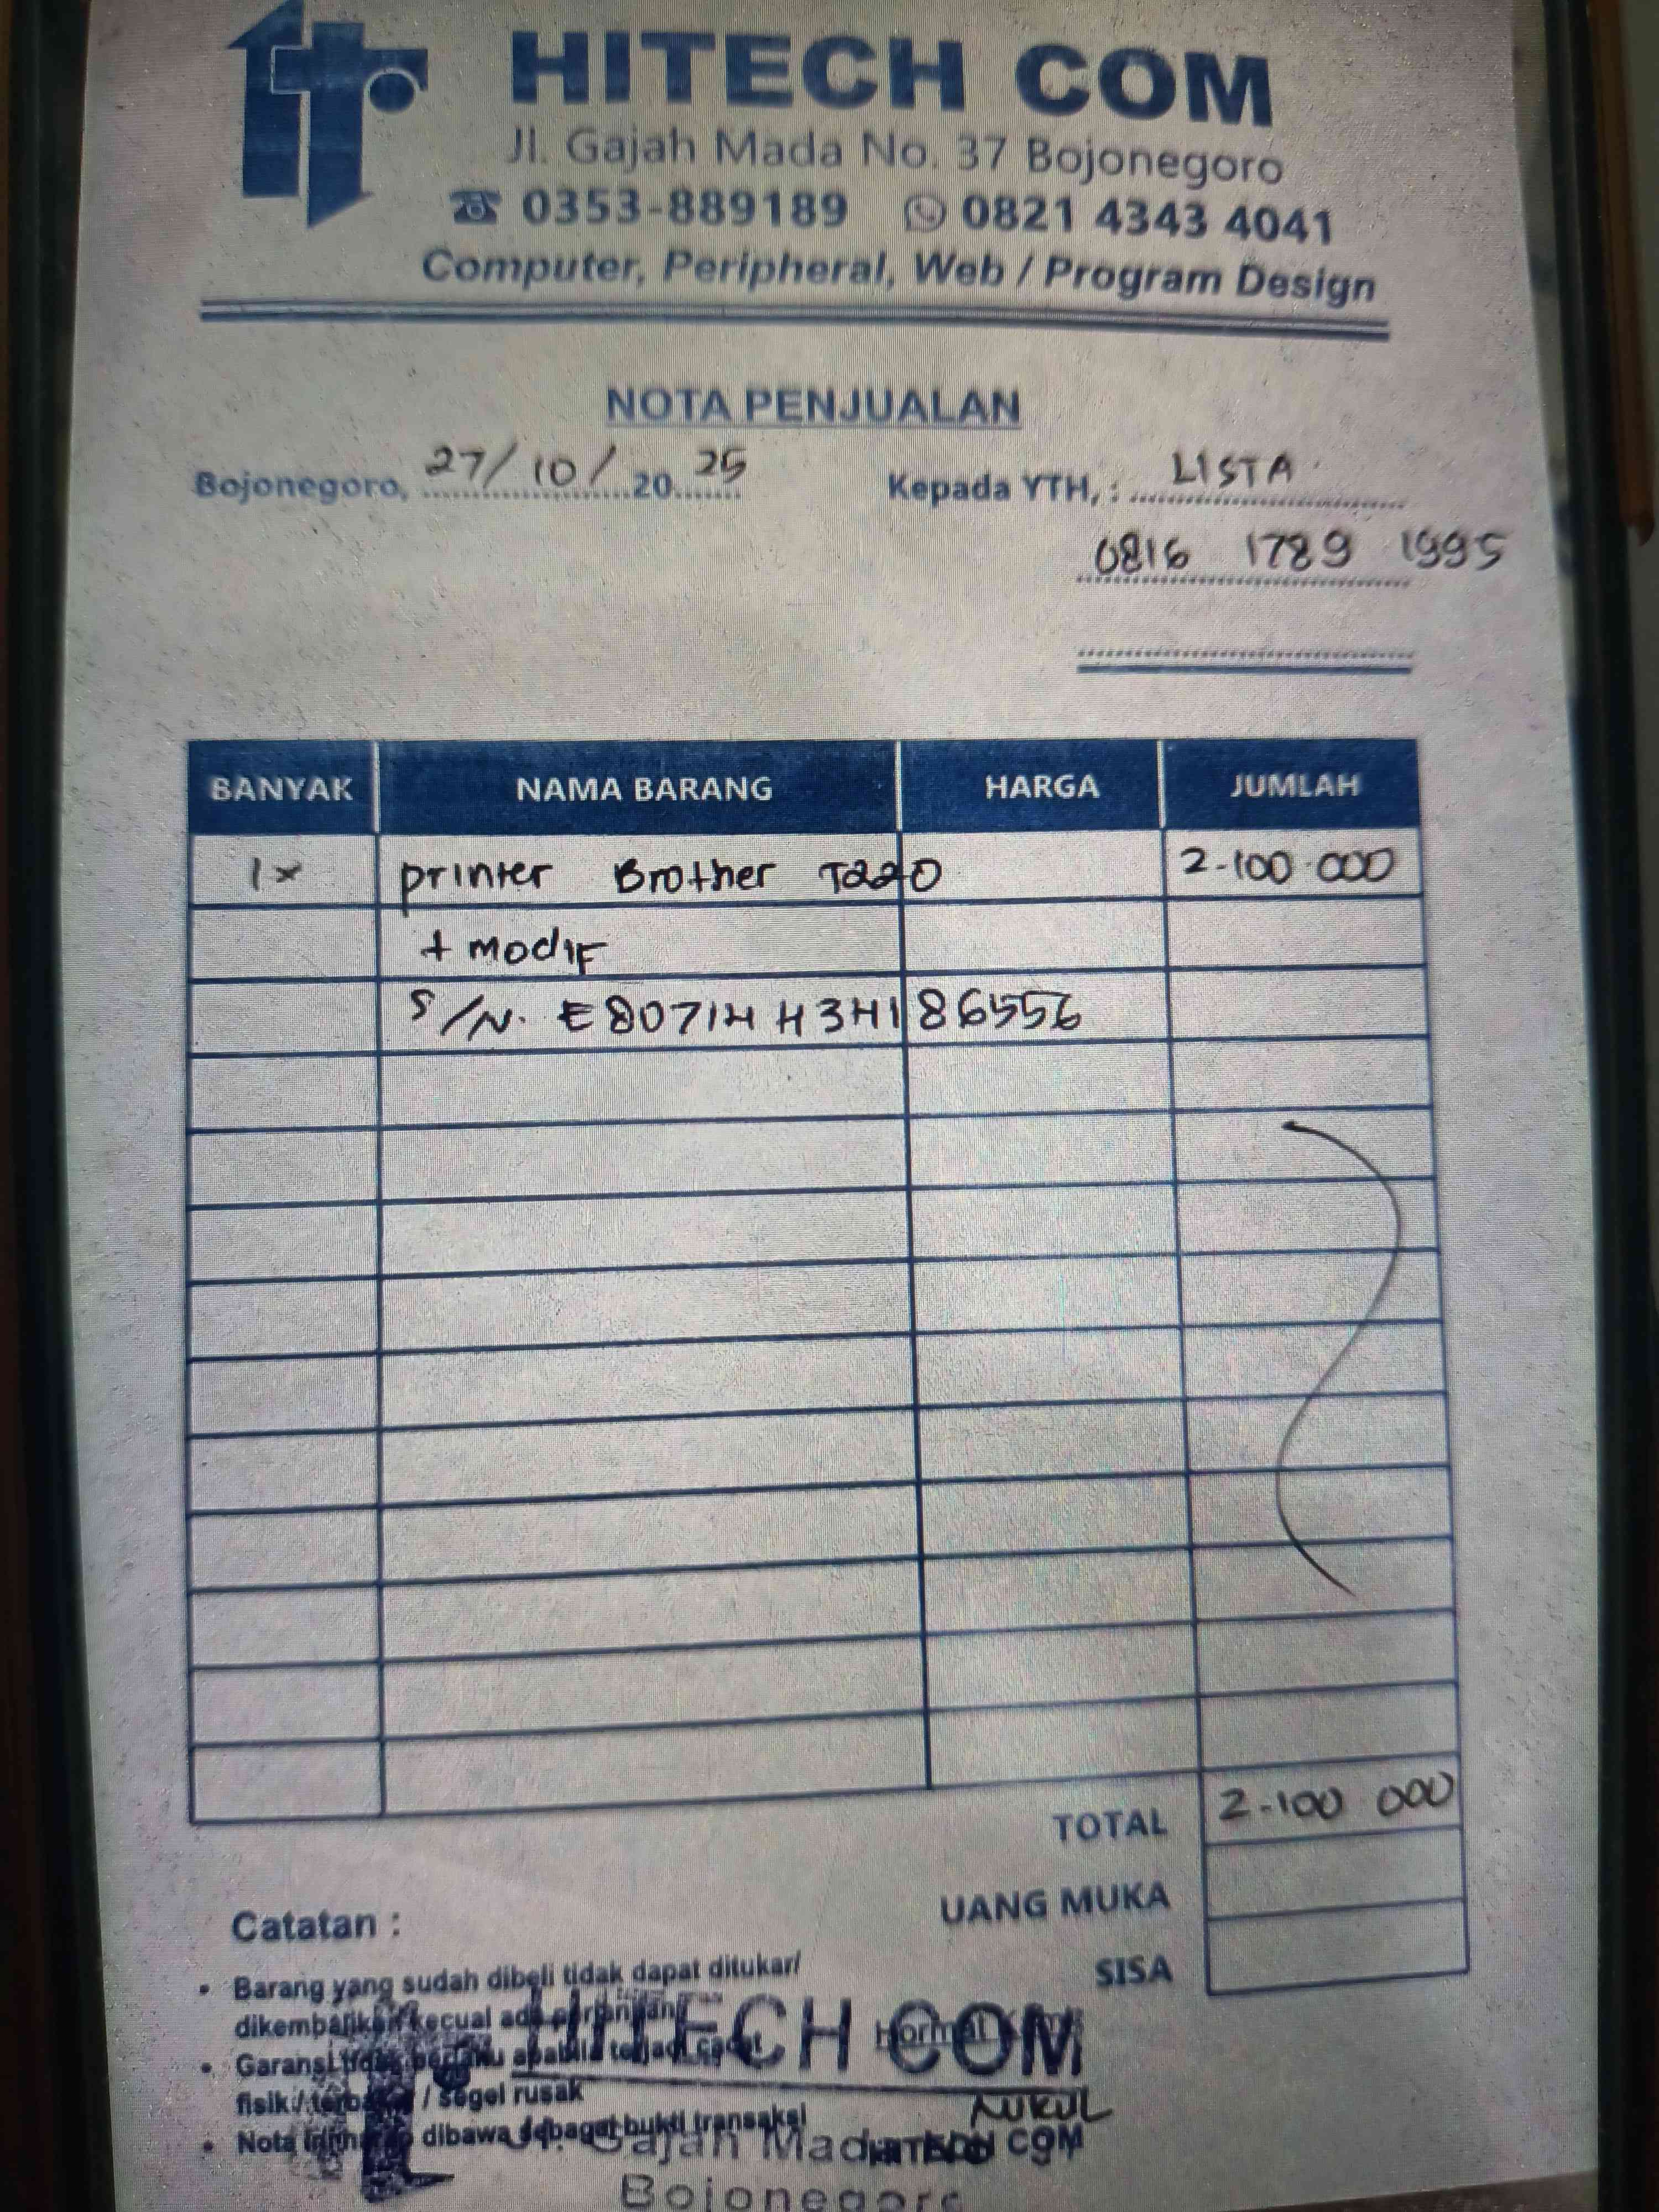 HITECH COM
Jl. Gajah Mada No. 37 Bojonegoro
0353-889189 0821 4343 4041
Computer, Peripheral, Web / Program Design
NOTA PENJUALAN
Bojonegoro, 27/10/2025 Kepada YTH, : LISTA
0816 1789 1995
BANYAK NAMA BARANG HARGA JUMLAH
1x printer Brother T220 2.100.000
+ modif
S/N. E80714H3H186556
TOTAL 2.100 000
UANG MUKA
SISA
Catatan :
• Barang yang sudah dibeli tidak dapat ditukar/
dikembalikan kecual ada perjanjian
• Garansi tidak berlaku apabila terjadi
fisik / terbakar / segel rusak
• Nota dibawa sebagai bukti transaksi
Hormat
HITECH COM
NURUL
HITECH COM
Jl. Gajah Mada
Bojonegoro